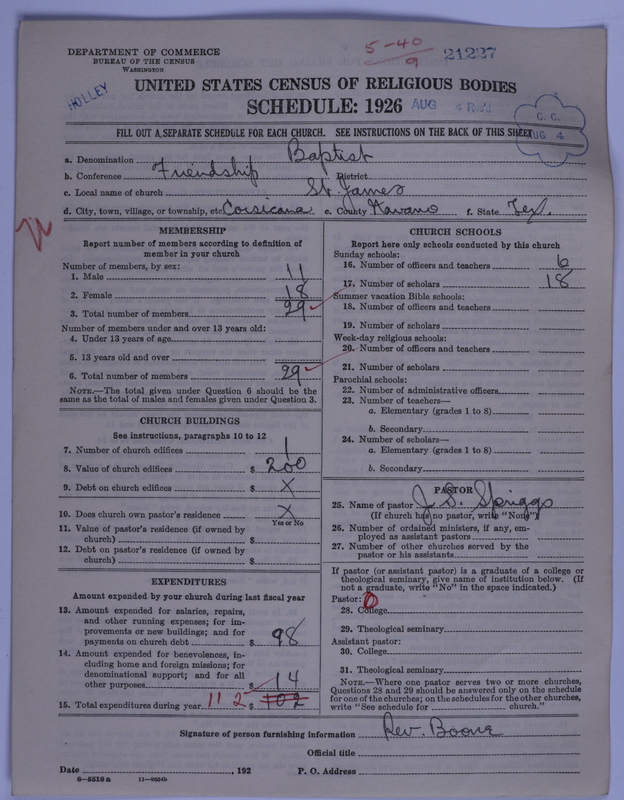 DEPARTMENT OF COMMERCE
BUREAU OF THE CENSUS
WASHINGTON
5-40
9
21227
HOLLEY
UNITED STATES CENSUS OF RELIGIOUS BODIES
SCHEDULE: 1926
AUG 4
C. C.
AUG 4
FILL OUT A SEPARATE SCHEDULE FOR EACH CHURCH. SEE INSTRUCTIONS ON THE BACK OF THIS SHEET
a. Denomination Baptist
b. Conference Friendship District
c. Local name of church St. James
d. City, town, village, or township, etc. Corsicana e. County Navarro f. State Tex.
MEMBERSHIP
Report number of members according to definition of
member in your church
Number of members, by sex:
1. Male 11
2. Female 18
3. Total number of members 29
Number of members under and over 13 years old:
4. Under 13 years of age
5. 13 years old and over
6. Total number of members 29
NOTE.—The total given under Question 6 should be the
same as the total of males and females given under Question 3.
CHURCH BUILDINGS
See instructions, paragraphs 10 to 12
7. Number of church edifices 1
8. Value of church edifices $ 200
9. Debt on church edifices $ X
10. Does church own pastor's residence X
Yes or No
11. Value of pastor's residence (if owned by
church) $
12. Debt on pastor's residence (if owned by
church) $
EXPENDITURES
Amount expended by your church during last fiscal year
13. Amount expended for salaries, repairs,
and other running expenses; for im-
provements or new buildings; and for
payments on church debt $ 98
14. Amount expended for benevolences, in-
cluding home and foreign missions; for
denominational support; and for all
other purposes $ 14
15. Total expenditures during year 112 $ 102
CHURCH SCHOOLS
Report here only schools conducted by this church
Sunday schools:
16. Number of officers and teachers 6
17. Number of scholars 18
Summer vacation Bible schools:
18. Number of officers and teachers
19. Number of scholars
Week-day religious schools:
20. Number of officers and teachers
21. Number of scholars
Parochial schools:
22. Number of administrative officers
23. Number of teachers—
a. Elementary (grades 1 to 8)
b. Secondary
24. Number of scholars—
a. Elementary (grades 1 to 8)
b. Secondary
PASTOR
25. Name of pastor J. S. Spriggs
(If church has no pastor, write "None")
26. Number of ordained ministers, if any, em-
ployed as assistant pastors
27. Number of other churches served by the
pastor or his assistants
If pastor (or assistant pastor) is a graduate of a college or
theological seminary, give name of institution below. (If
not a graduate, write "No" in the space indicated.)
Pastor: 0
28. College
29. Theological seminary
Assistant pastor:
30. College
31. Theological seminary
NOTE.—Where one pastor serves two or more churches,
Questions 28 and 29 should be answered only on the schedule
for one of the churches; on the schedules for the other churches,
write "See schedule for church."
Signature of person furnishing information Rev. Boone
Official title
Date , 192 P. O. Address
8—5518a 11—9054b